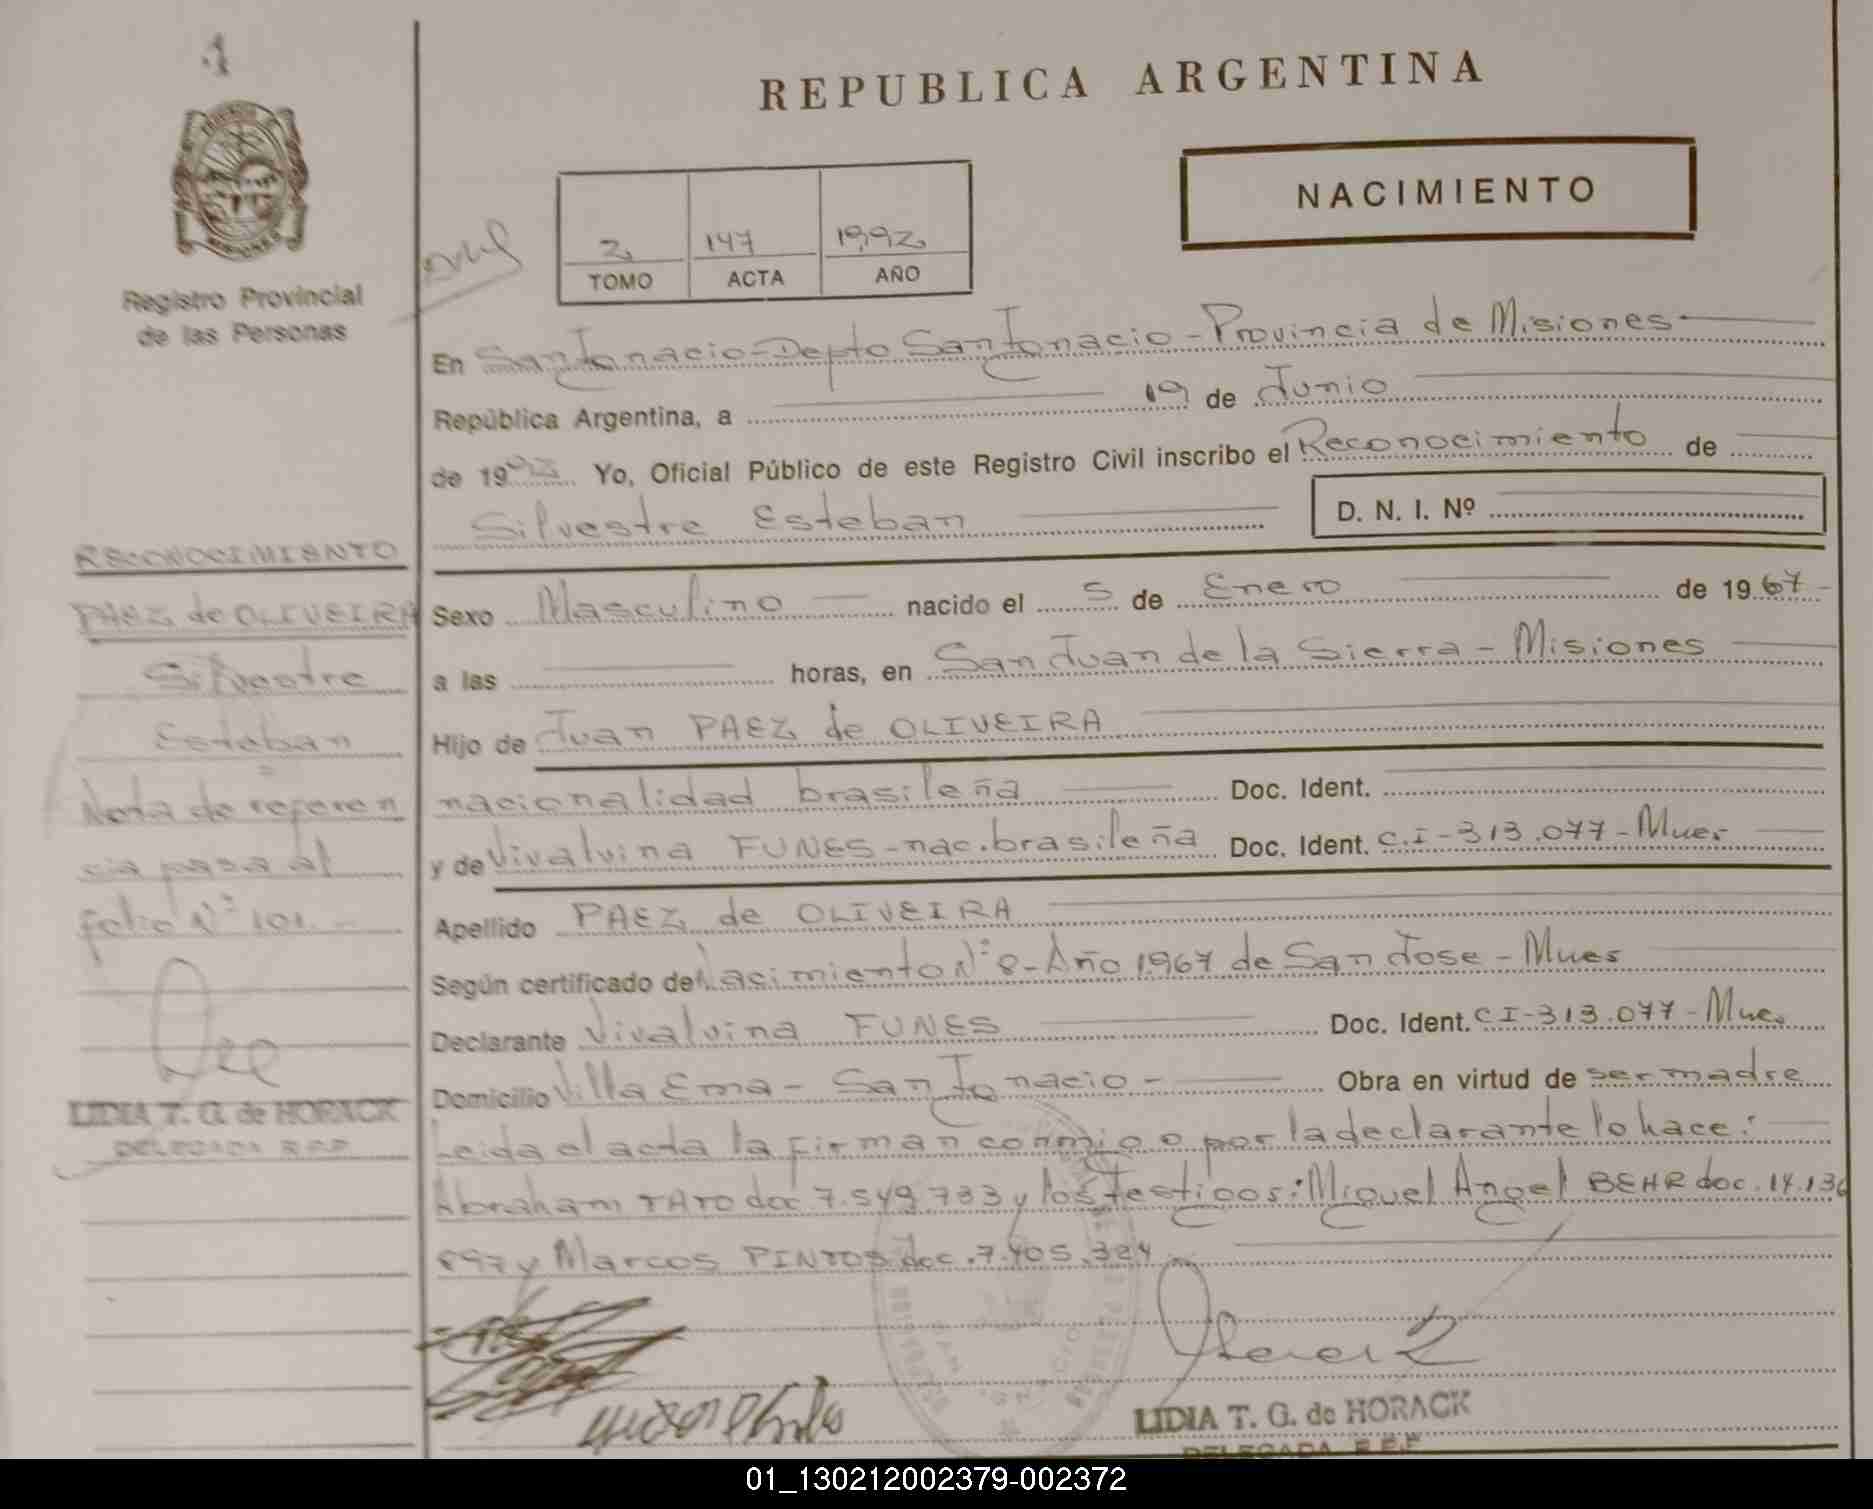 1
REPUBLICA ARGENTINA
NACIMIENTO
2 147 1992
TOMO ACTA AÑO
Registro Provincial
de las Personas
En San Ignacio - Depto San Ignacio - Provincia de Misiones
República Argentina, a 19 de Junio
de 1992 Yo, Oficial Público de este Registro Civil inscribo el Reconocimiento de
Silvestre Esteban D. N. I. Nº
RECONOCIMIENTO
PAEZ de OLIVEIRA
Silvestre
Esteban
Nota de referen
cia pasa al
folio Nº 101.-
LIDIA T. G. de HORACK
DELEGADA R.P.P
Sexo Masculino nacido el 5 de Enero de 1967
a las horas, en San Juan de la Sierra - Misiones
Hijo de Juan PAEZ de OLIVEIRA
nacionalidad brasileña Doc. Ident.
y de Vivalvina FUNES - nac. brasileña Doc. Ident. C.I - 313.077 - Mues
Apellido PAEZ de OLIVEIRA
Según certificado de Nacimiento Nº 8 - Año 1967 de San Jose - Mnes
Declarante Vivalvina FUNES Doc. Ident. C I - 313.077 - Mnes
Domicilio Villa Ema - San Ignacio - Obra en virtud de ser madre
Leida el acta la firman conmigo por la declarante lo hace:
Abraham TATO doc 7.549.733 y los testigos: Miguel Angel BEHR doc. 14.136
897 y Marcos PINTOS doc. 7.405.324
LIDIA T. G. de HORACK
DELEGADA
01_130212002379-002372